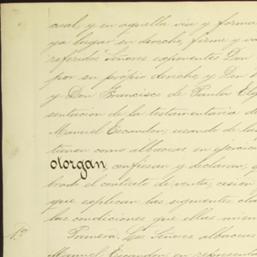 cual, y en aquella via y forma
ya lugar en derecho, firme y va
referidos Señores exponentes Don
por su propio derecho y Don
y Don Francisco de Paula
sentacion de la testamentaria de
Manuel Escandon, usando de la
tienen como albaceas en
otorgan confiesan y declaran, q
brado el contrato de venta, cesion
que esplican las siguientes
las condiciones que ellas mien
1ª Primera. Los Señores albaceas
Manuel Escandon en representa